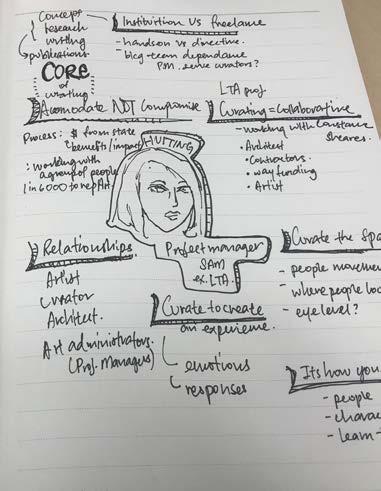 Concept
research
writing
publications
CORE
of
curating
Institution VS freelance
- hands on vs directive.
- big-team dependance
PM. serve curators?
LTA proj.
Acomodate NOT Compromise
Process: $ from state
benefits/impact
: working with
a group of people
1 in 6000 to rep Art
HUITING
Curating = Collaborative
- working with Constance
Sheares.
• Architect
• Contractors.
• way funding
• Artist
Relationships.
Artist
Curator
Architect.
Art administrators.
(Proj. Managers)
Project manager
SAM
ex. LTA.
Curate to create
an experience.
emotions
responses
Curate the Spa
- people movemen
- where people loo
- eye level?
Its how you
- people
- charac
- learn -